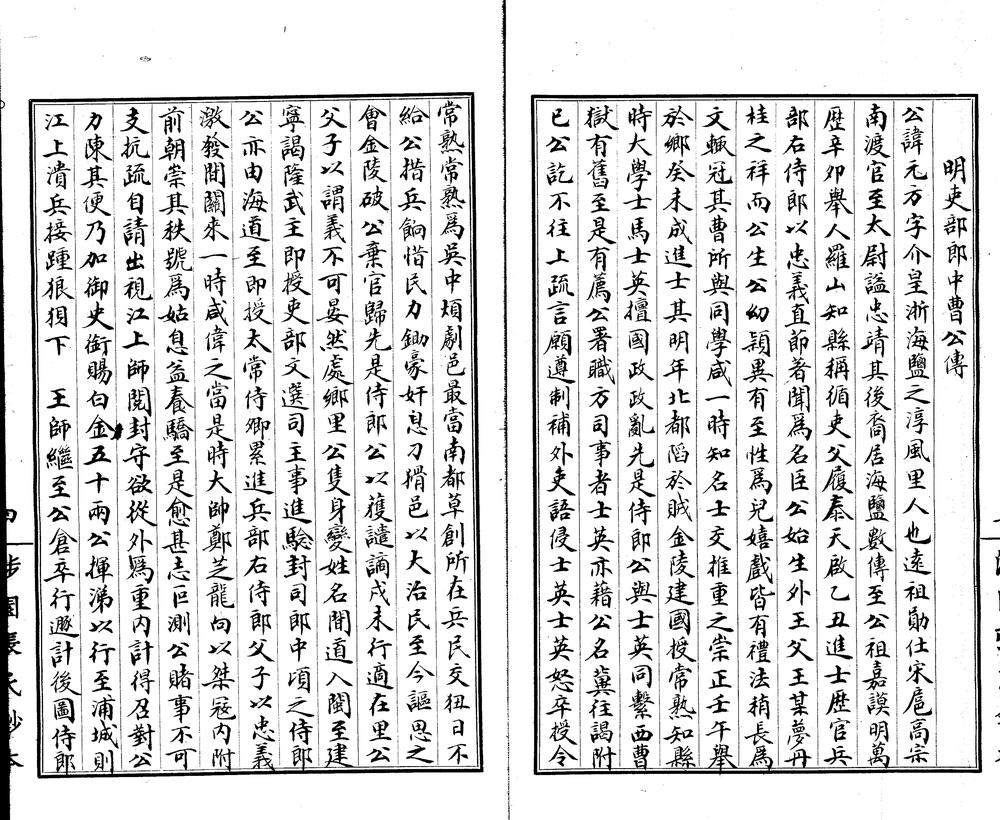 明吏部郎中曹公傳
公諱元方字介皇浙海鹽之淳風里人也遠祖勛仕宋扈高宗
南渡官至太尉諡忠靖其後裔居海鹽數傳至公祖嘉謨明萬
歷辛夘舉人羅山知縣稱循吏父履泰天啟乙丑進士歷官兵
部右侍郎以忠義直節著聞爲名臣公始生外王父王某夢丹
桂之祥而公生公幼穎異有至性爲兒嬉戲皆有禮法稍長爲
文輒冠其曹所與同學咸一時知名士交推重之崇正壬午舉
於鄉癸未成進士其明年北都䧟於賊金陵建國授常熟知縣
時大學士馬士英擅國政政亂先是侍郎公與士英同繫西曹
獄有舊至是有薦公署職方司事者士英亦藉公名冀往謁附
已公訖不往上疏言願遵制補外吏語侵士英士英怒卒授令
常熟常熟爲吳中煩劇邑最當南都草創所在兵民交狃日不
給公措兵餉惜民力鋤豪奸息刁猾邑以大治民至今謳思之
會金陵破公棄官歸先是侍郎公以䕶讉謫戍未行適在里公
父子以謂義不可晏然處鄉里公隻身變姓名間道入閩至建
寧謁隆武主即授吏部文選司主事進驗封司郎中頃之侍郎
公亦由海道至即授太常侍卿累進兵部右侍郎父子以忠義
激發間關來一時咸偉之當是時大帥鄭芝龍向以桀寇内附
前朝崇其秩號爲姑息益養驕至是愈甚志叵測公睹事不可
支抗疏自請出視江上師閱封守欲從外爲重内計得召對公
力陳其便乃加御史銜賜白金五十兩公揮涕以行至浦城則
江上潰兵接踵狼狽下　王師繼至公倉卒行遯計後圖侍郎
涉園張氏鈔本